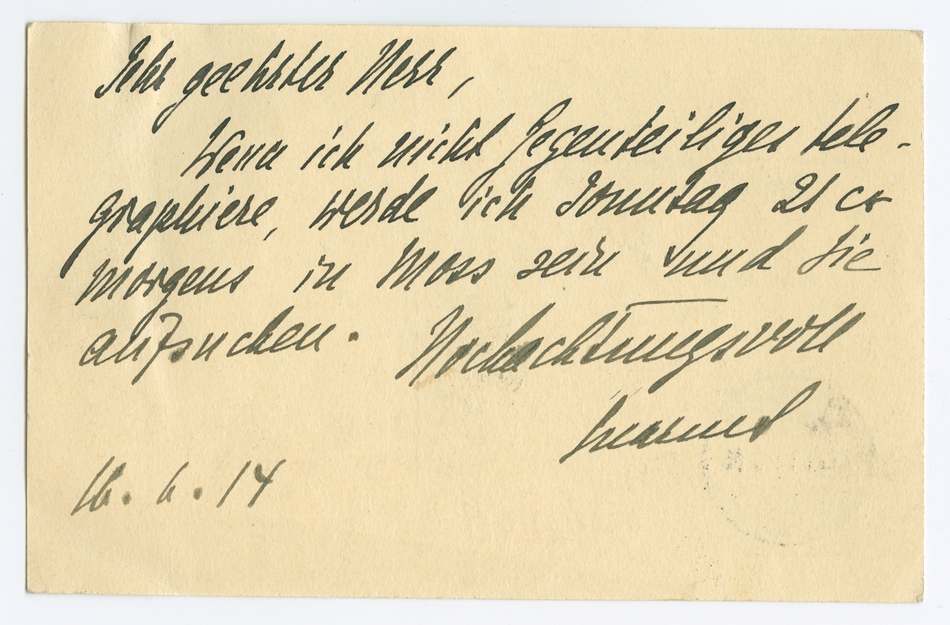 Sehr geehrter Herr,
Wenn ich nicht Gegenteiliges tele-
graphiere, werde ich Sonntag 21 cr
morgens in Moss sein und Sie
aufsuchen.
Hochachtungsvoll
16. 6. 14